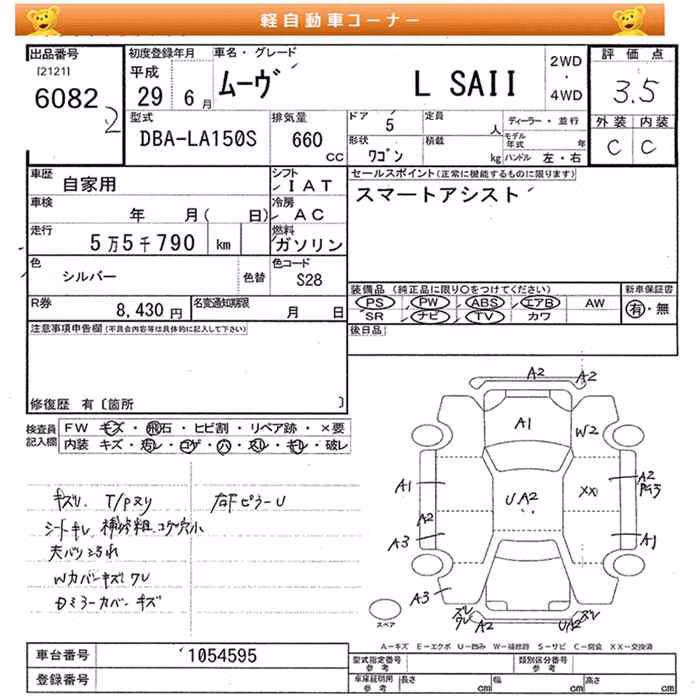 軽自動車コーナー
出品番号
[2121]
6082
2
初度登録年月
平成
29年 6月
車名・グレード
ムーヴ
L SAII
2WD
・
4WD
評価点
3.5
外装 内装
C C
型式
DBA-LA150S
排気量
660
CC
ドア
5
定員
人
形状
ワゴン
積載
kg
ディーラー・並行
モデル年式 年
ハンドル 左・右
車歴
自家用
シフト
IAT
車検
年 月( 日)
冷房
AC
走行
5万5千790 km
燃料
ガソリン
色
シルバー
色替
色コード
S28
R券
8,430円
名変通知期限
月 日
セールスポイント(正常に機能するものに限ります)
スマートアシスト
装備品 (純正品に限り○をつけてください)
PS PW ABS エアB AW
SR ナビ TV カワ
新車保証書
有・無
後日品
注意事項申告欄(不具合内容等は具体的に記入して下さい)
修復歴 有〔箇所 〕
検査員記入欄
FW キズ・飛石・ヒビ割・リペア跡・×要
内装 キズ・汚レ・コゲ・穴・スレ・キレ・破レ
キズリ T/Pヌリ
右Fピラー U
シートキレ 補修粗 コゲ穴小
天バリ汚れ
Wカバーキズ ワレ
Dミラーカバー キズ
A2
A2
A1
W2
A1
UA2
XX
A2
A2
A3
A1
A3
A2
UA2
スペア
A-キズ E-エクボ U-凹み W-補修跡 S-サビ C-腐食 XX-交換済
車台番号
1054595
登録番号
型式指定番号
参考
類別区分番号
参考
車庫証明用
参考
長さ cm
幅 cm
高さ cm